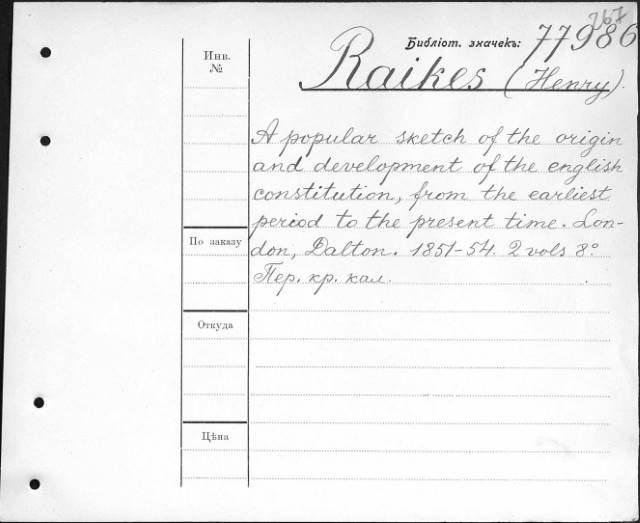 267
Библіот. значекъ: 77986
Инв.
№
Raikes (Henry).
A popular sketch of the origin
and development of the english
constitution, from the earliest
period to the present time. Lon-
По заказу
don, Dalton. 1851-54. 2 vols 8º
Пер. кр. кал.
Откуда
Цѣна